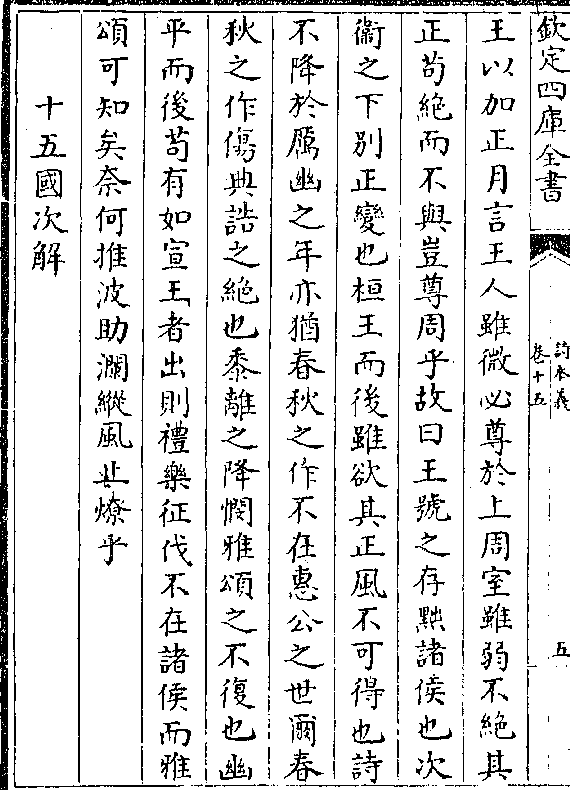 欽定四庫全書
詩本義
卷十五
五
王以加正月言王人雖微必尊於上周室雖弱不絶其
正苟絶而不與豈尊周乎故曰王號之存黜諸侯也次
衞之下别正變也桓王而後雖欲其正風不可得也詩
不降於厲幽之年亦猶春秋之作不在惠公之世爾春
秋之作傷典誥之絶也黍離之降憫雅頌之不復也幽
平而後苟有如宣王者出則禮樂征伐不在諸侯而雅
頌可知矣奈何推波助瀾縱風止燎乎
十五國次解